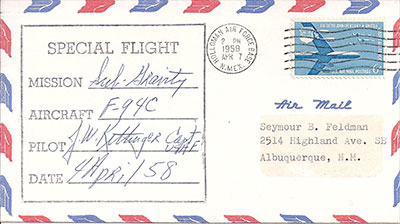 SPECIAL FLIGHT
MISSION Sub-Gravity
AIRCRAFT F-94C
PILOT J.W. Kittinger Capt
USAF
DATE 4 April/58
HOLLOMAN AIR FORCE BASE
PM
1958
APR 7
N.MEX.
6¢
Air Mail
Seymour B. Feldman
2514 Highland Ave. SE
Albuquerque, N.M.